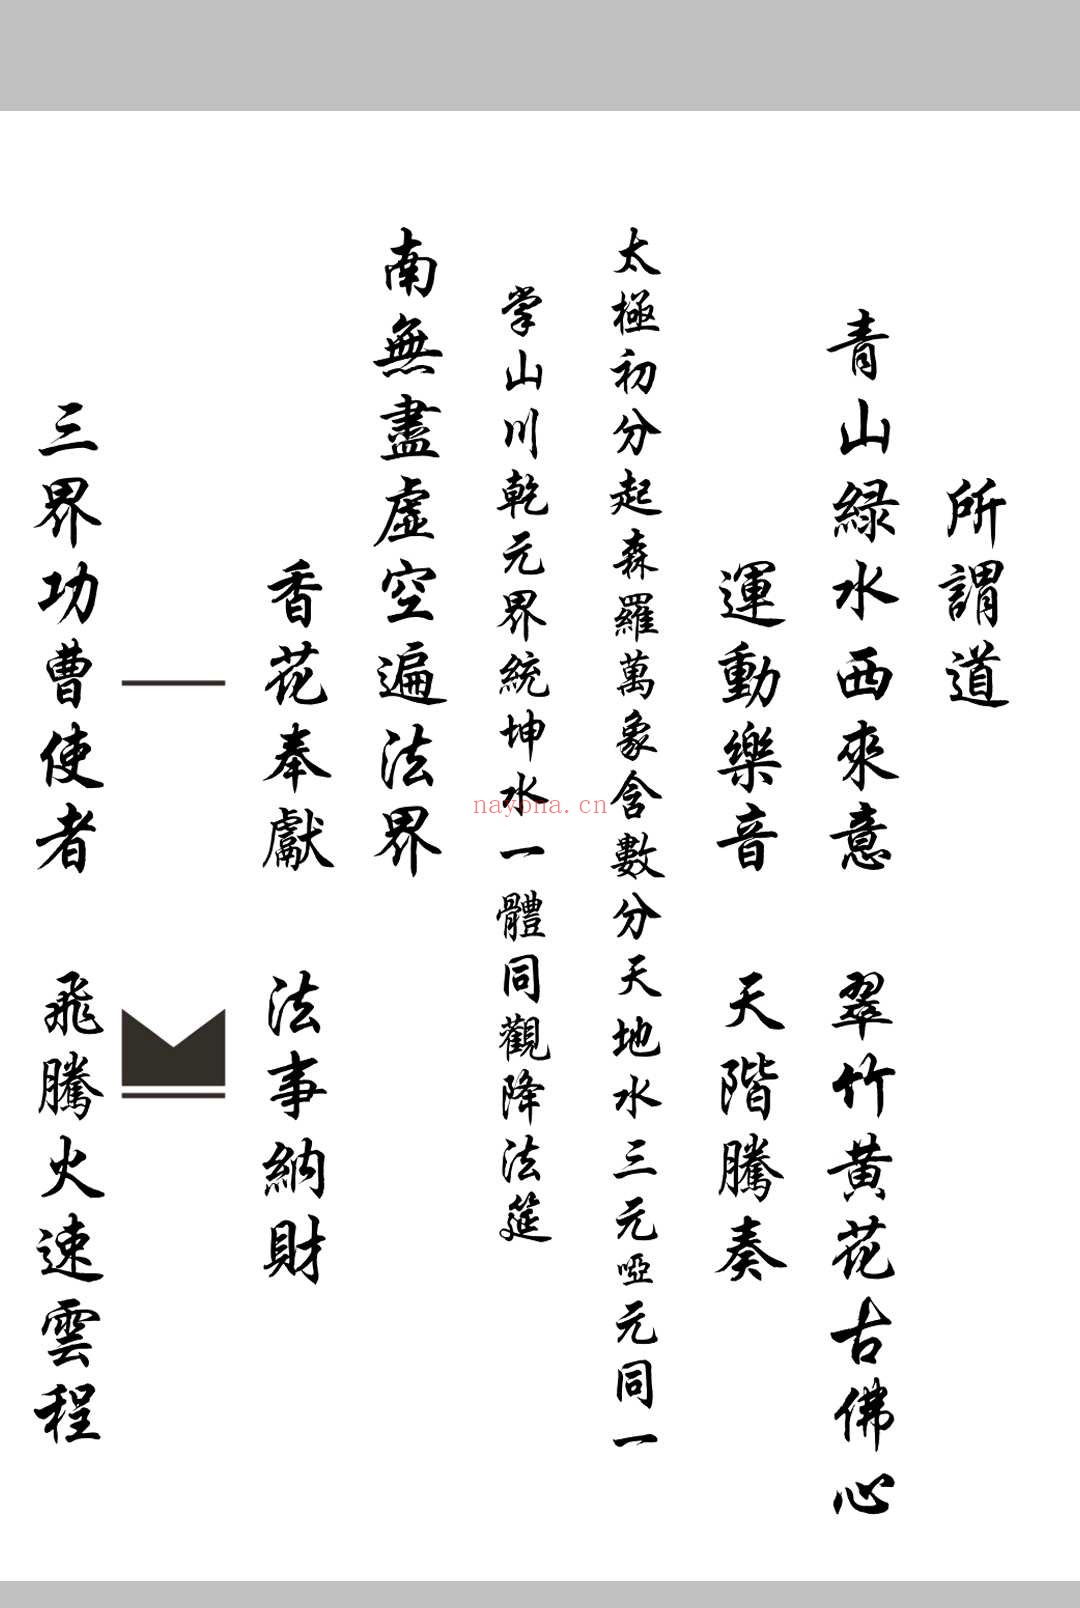 所謂道
青山緑水西來意　翠竹黄花古佛心
運動樂音　天階騰奏
太極初分起森羅萬象含數分天地水三元啞元同一
掌山川乾元界統坤水一體同觀降法筵
南無盡虛空遍法界
香花奉獻　法事納財
三界功曹使者　飛騰火速雲程
nayona.cn